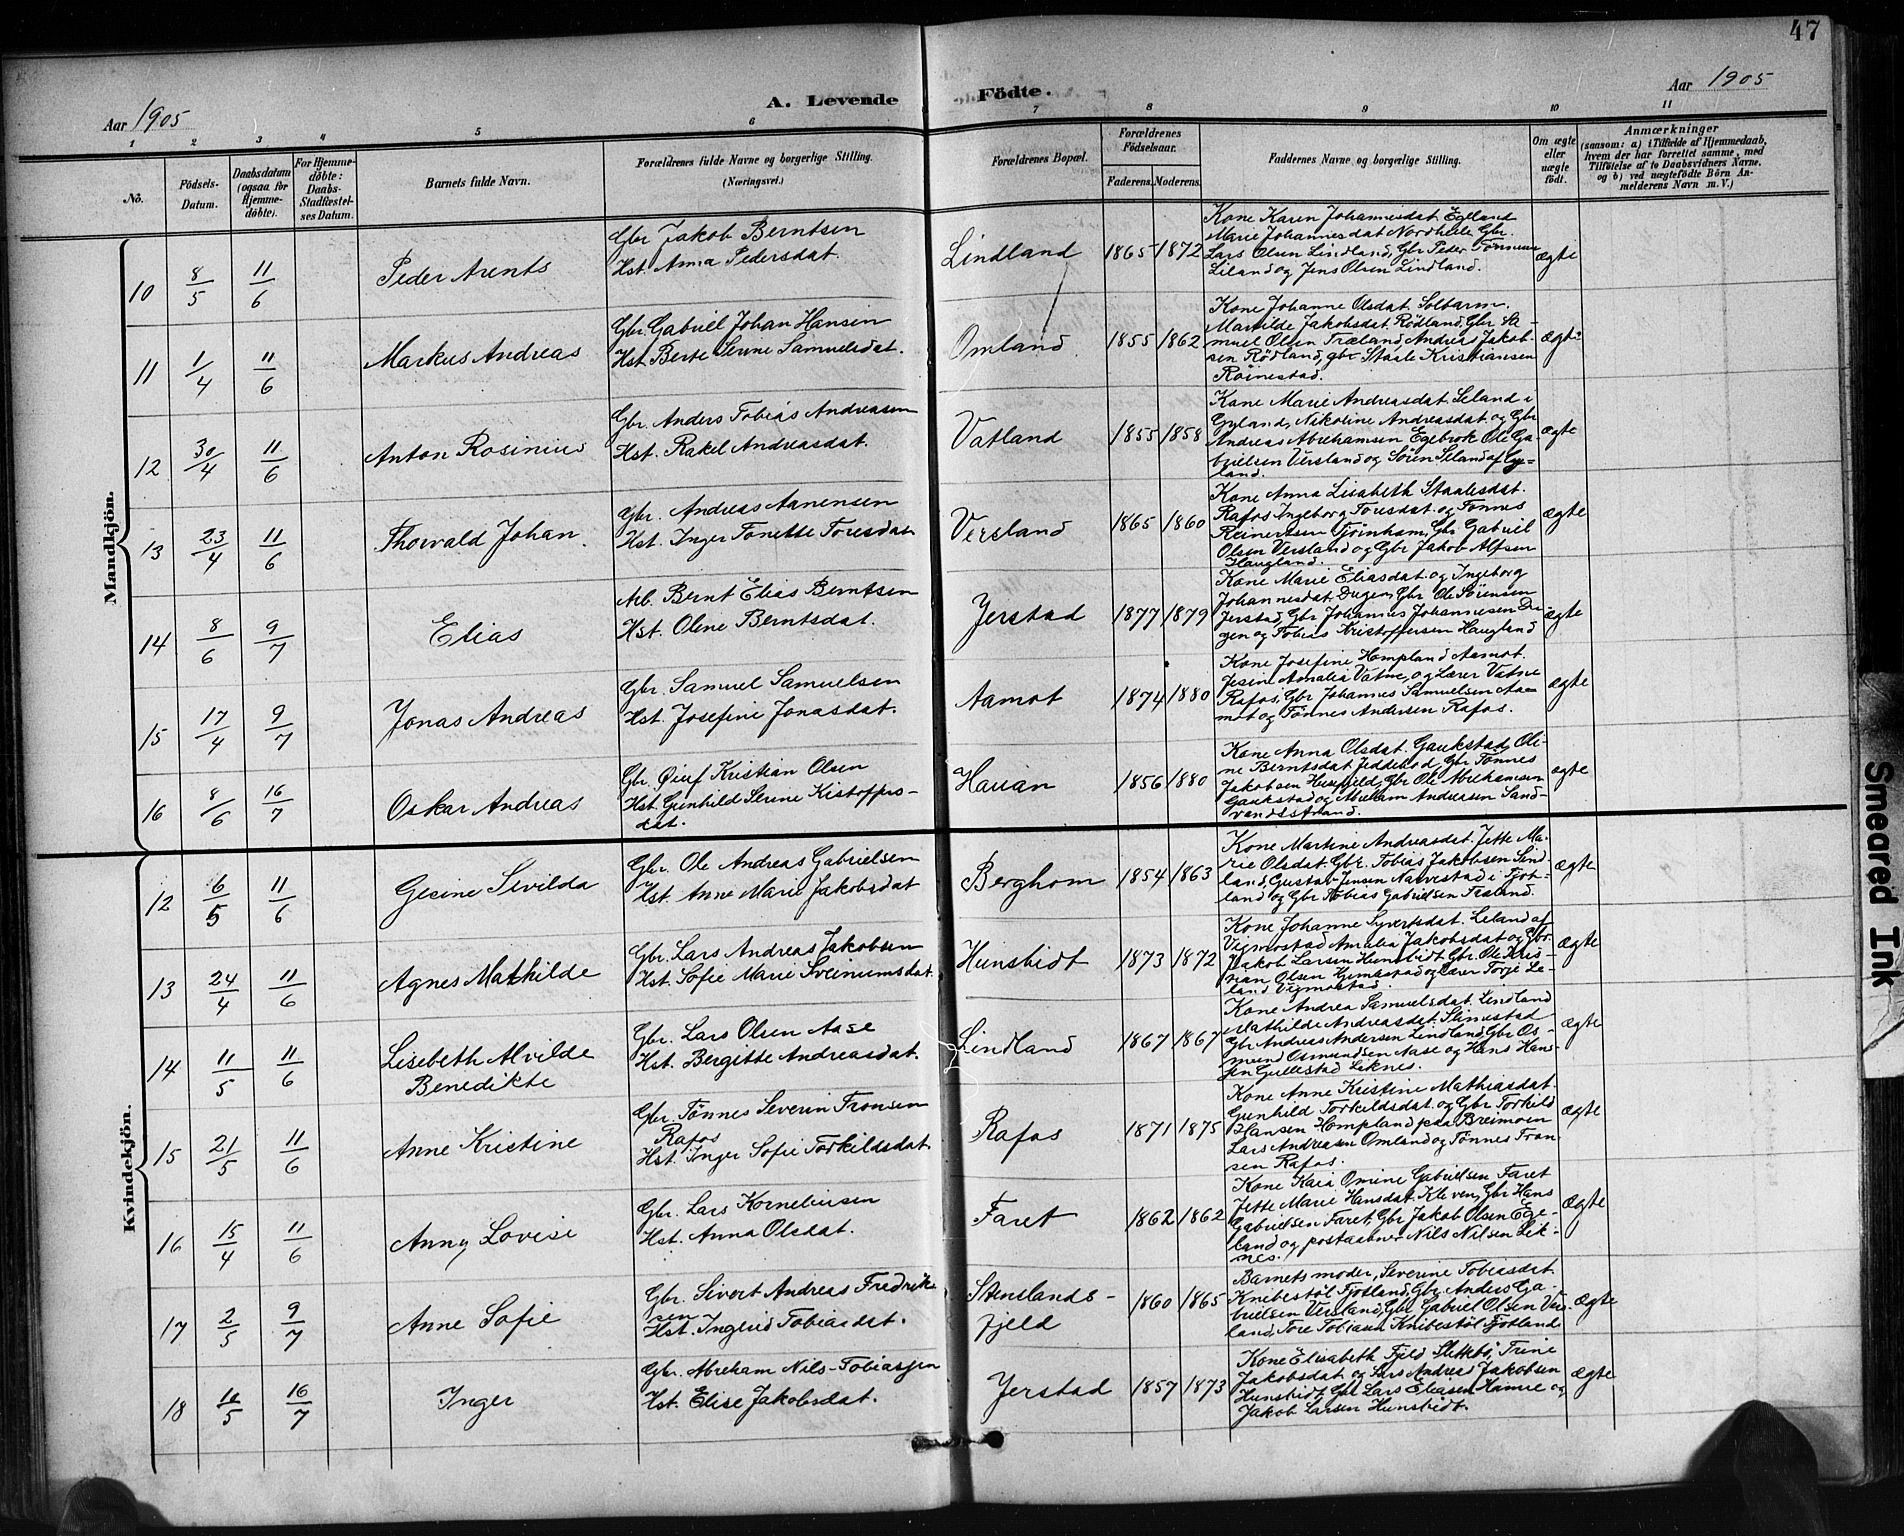 47
Aar 1905
A. Levende Födte.
Aar 1905
1 2 3 4 5 6 7 8 9 10 11
No.
Födsels-Datum.
Daabsdatum (ogsaa for Hjemme-döbte).
For Hjemme-döbte: Daabs-Stadfæstel-ses Datum.
Barnets fulde Navn.
Forældrenes fulde Navne og borgerlige Stilling.
(Næringsvei.)
Forældrenes Bopæl.
Forældrenes Födselsaar.
Faderens. Moderens.
Faddernes Navne og borgerlige Stilling.
Om ægte eller uægte födt.
Anmærkninger
(saasom: a) i Tilfælde af Hjemmedaab,
hvem der har forrettet samme, med
Tilföielse af to Daabsvidners Navne,
og b) ved uægtefödte Börn An-
melderens Navn m. V.)
Mandkjön.
10 8/5 11/6 Peder Arents
Gbr Jakob Berntsen
Hst. Anna Pedersdat.
Lindland 1865 1872
Kone Karen Johannesdat. Egeland
Marie Johannesdat Nordhelle, Gbr.
Lars Olsen Lindland, Gbr Peder Tönnesen
Liland og Jens Olsen Lindland.
ægte
11 1/4 11/6 Markus Andreas
Gbr. Gabriel Johan Hansen
Hst. Berte Serine Samuelsdat.
Omland 1855 1862
Kone Johanne Olsdat. Solbarm.
Mathilde Jakobsdat. Rödland, Gbr Sa-
muel Olsen Træland, Andreas Jakob-
sen Rödland, gbr Staale Kristiansen
Röinestad.
ægte
12 30/4 11/6 Anton Rosinius
Gbr. Anders Tobias Andreasen
Hst. Rakel Andreasdat.
Vatland 1855 1858
Kone Marie Andreasdat. Seland i
Gyland, Nikoline Andreasdat og Gbr
Andreas Abrahamsen Egebrok Ole Ga-
brielsen Versland og Sören Seland af Gy-
land.
ægte
13 23/4 11/6 Thorvald Johan
Gbr. Andreas Aanensen
Hst. Inger Tonette Toresdat
Versland 1865 1860
Kone Anna Lisabeth Staalesdat.
Rafos Ingeborg Toresdat og Tönnes
Reinertsen Tjörnham, Gbr Gabriel
Olsen Versland og Gbr Jakob Alfsen
Haugland.
ægte
14 8/6 9/7 Elias
Arb. Bernt Elias Berntsen
Hst. Olene Berntsdat.
Jerstad 1877 1879
Kone Marie Eliasdat og Ingeborg
Johannesdat. Dugen, Gbr Ole Sörensen
Jerstad, Gbr Johannes Johannesen Du-
gen og Tobias Kristoffersen Haugland
ægte
15 17/4 9/7 Jonas Andreas
Gbr. Samuel Samuelsen
Hst. Josefine Jonasdat.
Aamot 1874 1880
Kone Josefine Hompland Aamot.
Jesine Amalia Vatne, og Lærer Vatne
Rafos, Gbr Johannes Samuelsen Aa-
mot og Tönnes Andersen Rafos.
ægte
16 8/6 16/7 Oskar Andreas
Gbr Kristian Olsen
Hst. Gunhild Serine Kistoffers-
dat.
1856 1880
Kone Anna Olsdat. Gaukstad, Oli-
ne Berntsdat Gbr Tönnes
Jakobsen Gbr Ole Abrahamsen
Gaukstad og Abraham Andreasen Sand-
vandsstrand.
ægte
Kvindekjön.
12 6/5 11/6 Gesine Sevilda
Gbr. Ole Andreas Gabrielsen
Hst. Anne Marie Jakobsdat
Berghom 1854 1863
Kone Martine Andreasdat. Jette Ma-
rie Olsdat. Gbr. Tobias Jakobsen Sind-
land, Gustav Jensen Narvestad i Fjot-
land og Gbr Tobias Gabrielsen Træland.
ægte
13 24/4 11/6 Agnes Mathilde
Gbr. Lars Andreas Jakobsen
Hst. Sofie Marie Sveinumsdat.
Hunsbidt 1873 1872
Kone Johanne Syvertsdat. Leland af
Vigmostad Amalia Jakobsdat og Gbr
Jakob Larsen Hunsbidt Gbr. Ole Kris-
tian Olsen og lærer Torje Le-
land Vigmostad.
ægte
14 11/5 11/6 Lisebeth Alvilde
Benedikte
Gbr. Lars Olsen Aase
Hst. Bergitte Andreasdat.
Lindland 1867 1867
Kone Andrea Samuelsdat. Lindland
Mathilde Andreasdat. Stinestad
Gbr Andreas Andersen Lindland, Gbr Os-
mund Osmundsen Aase og Hans Hans-
sen Gullestad Liknes.
ægte
15 21/5 11/6 Anne Kristine
Gbr. Tönnes Severin Tronsen
Rafos
Hst. Inger Sofie Torkildsdat.
Rafos 1871 1875
Kone Anne Kristine Mathiasdat.
Gunhild Torkildsdat. og Gbr Torkild
Hansen Hompland, paa Breimoen
Lars Andreasen Omland og Tönnes Tron
sen Rafos.
ægte
16 15/4 11/6 Anny Lovise
Gbr. Lars Korneliusen
Hst. Anna Olsdat.
Faret 1862 1862
Kone Kaia Omine Gabrielsen Faret
Jette Marie Hansdat. Kleven, Gbr Hans
Gabrielsen Faret, Gbr Jakob Olsen Ege-
land og postaabner Nils Nilsen Lik-
nes.
Ægte
17 2/5 9/7 Anne Sofie
Gbr. Sivert Andreas Fredrik-
sen
Hst. Ingerid Tobiasdat.
Stenslands-
fjeld 1860 1865
Barnets moder, Severine Tobiasdat.
Knibestöl Fjotland, Gbr. Anders Ga-
brielsen Versland, Gbr Gabriel Olsen Vers-
land, Tore Tobiasen Knibestöl Fjotland
ægte
18 16/5 16/7 Inger
Gbr. Abraham Nils-Tobiassen
Hst. Elise Jakobsdat.
Jerstad 1857 1873
Kone Elisabeth Fjeld Slettebö, Trine
Jakobsdat og Lars Andreas Jakobsen
Hunsbidt, Gbr Lars Eliasen Hamre og
Jakob Larsen Hunsbidt.
ægte
Smeared Ink